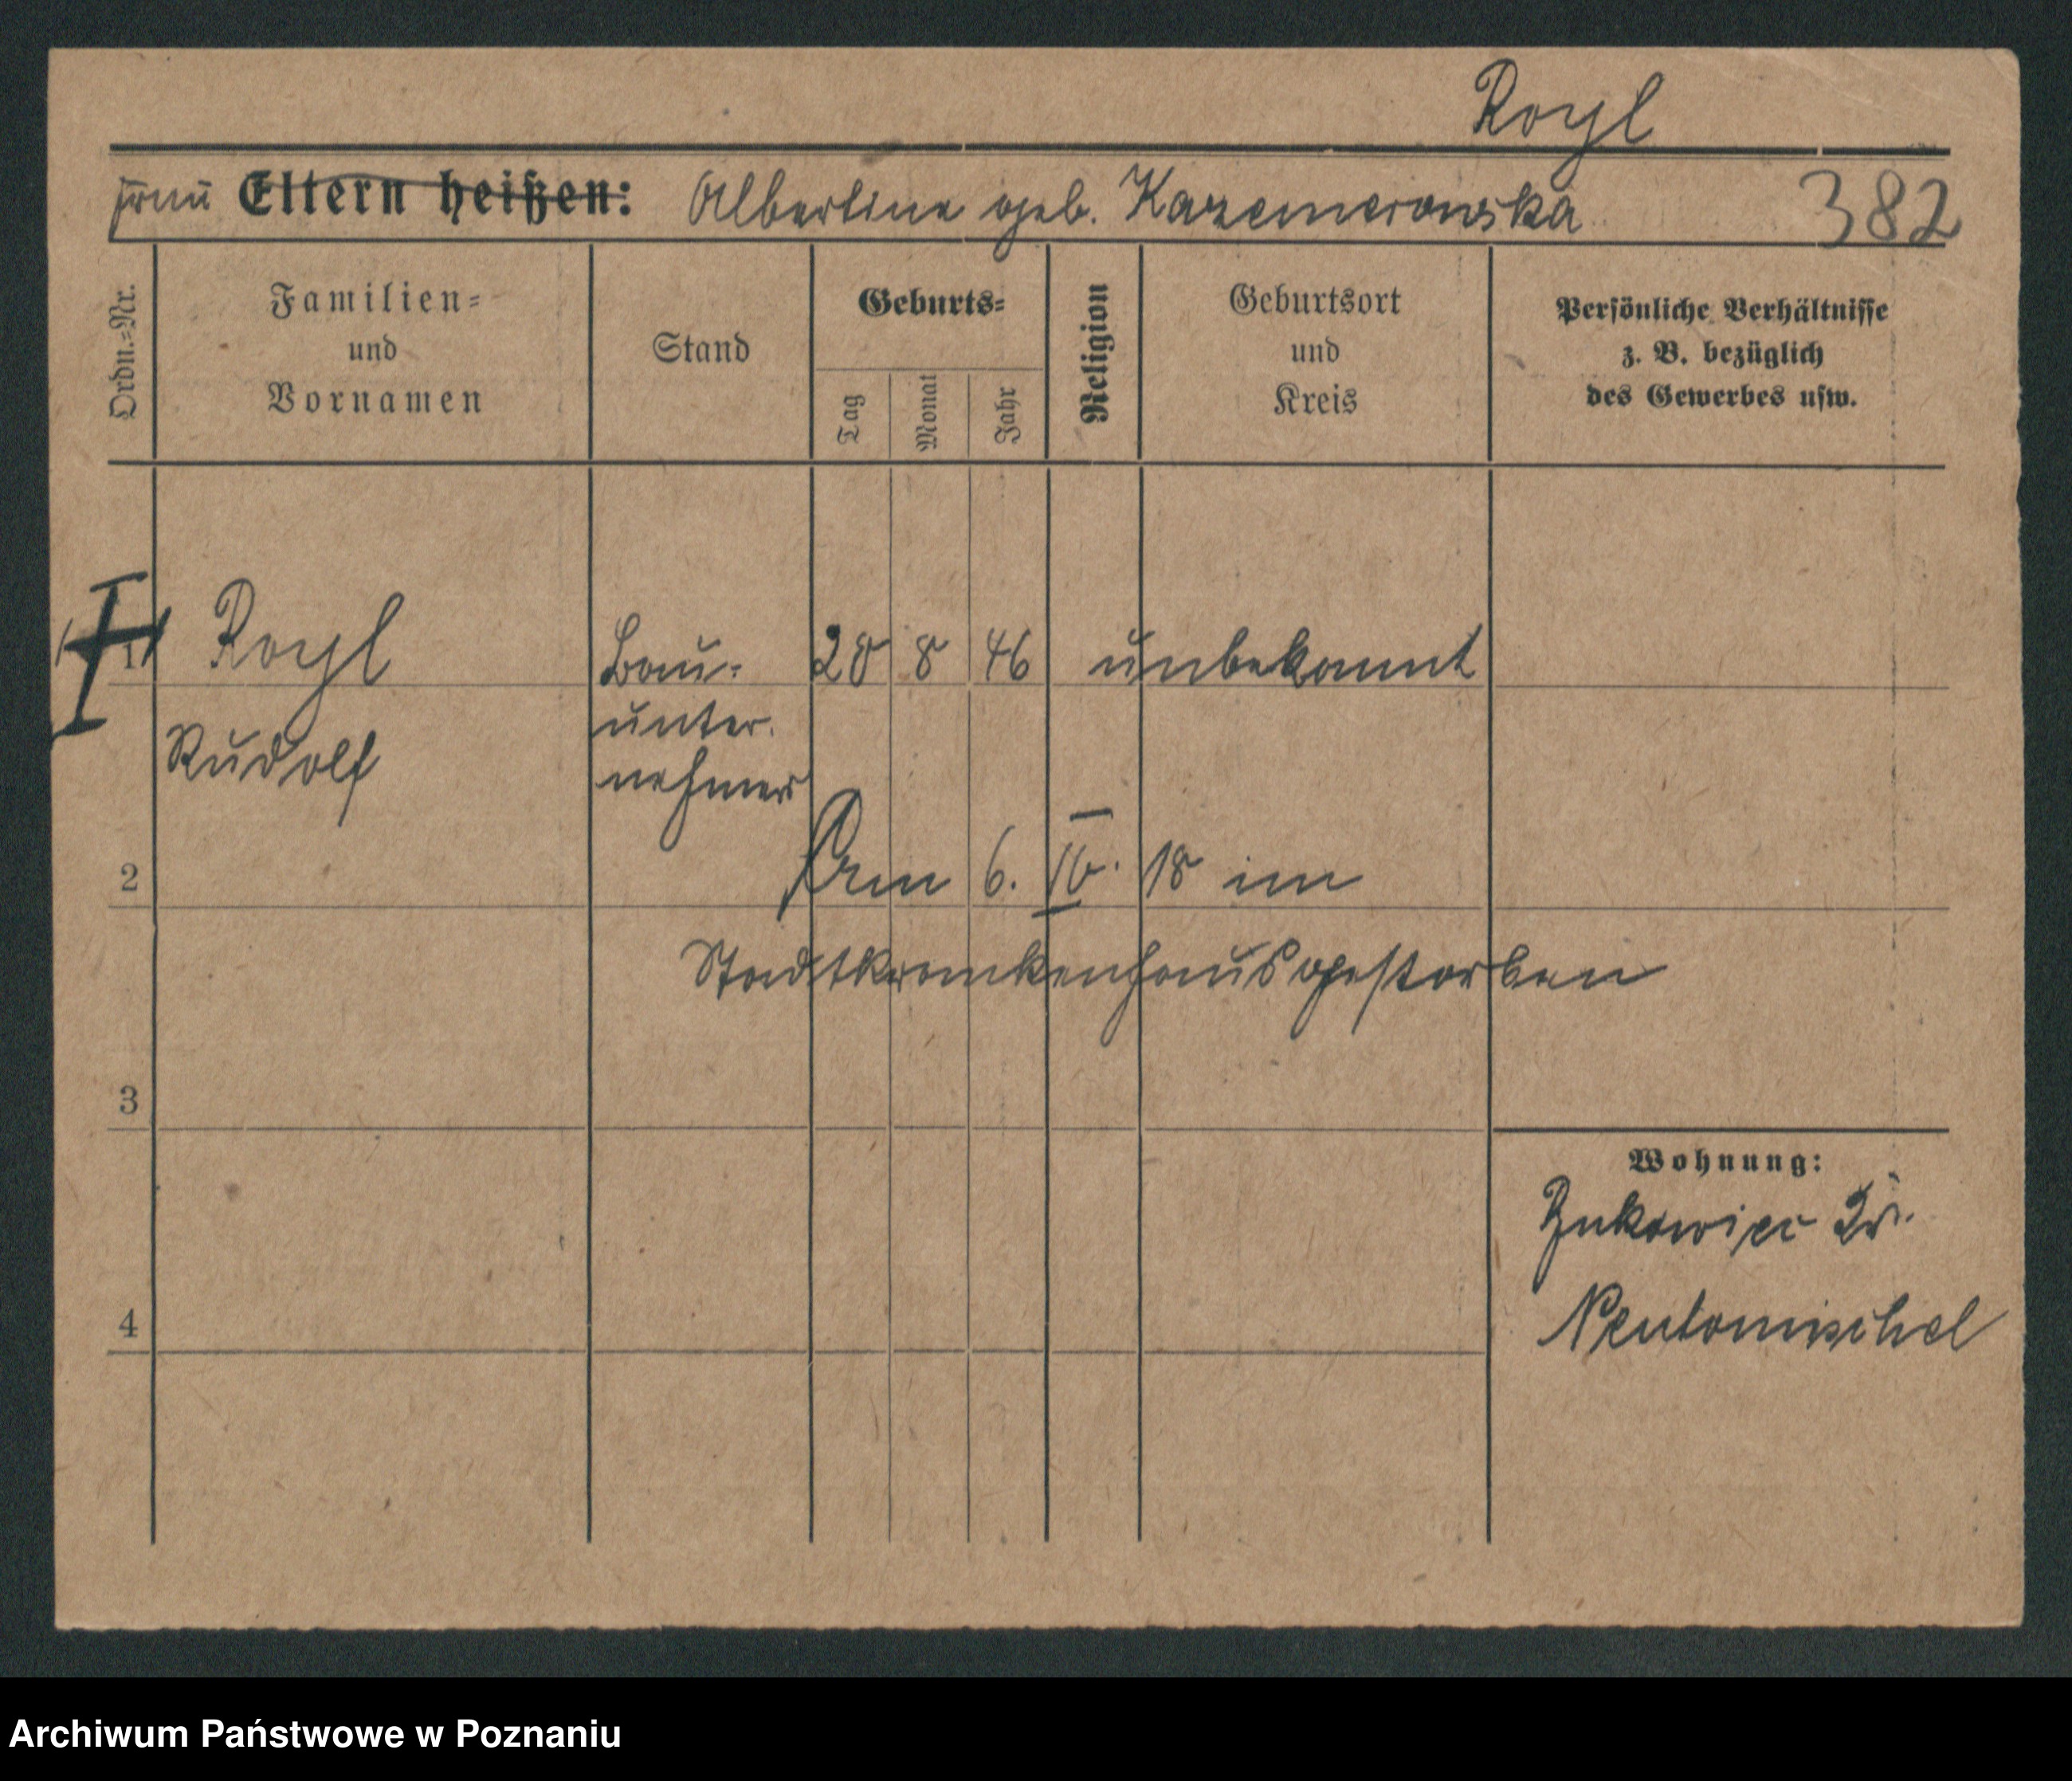 Royl
frau Eltern heißen: Albertine geb. Kazemerowska 382
Ordn.-Nr.
Familien-
und
Vornamen
Stand
Geburts-
Tag
Monat
Jahr
Religion
Geburtsort
und
Kreis
Persönliche Verhältnisse
z. B. bezüglich
des Gewerbes usw.
1 Royl Bau- 28 8 46 unbekannt
unter.
Rudolf
nehmer
2 Am 6. 18 im
Stadtkrankenhaus gestorben
3
Wohnung:
Zukowiec Kr.
4 Neutomischel
Archiwum Państwowe w Poznaniu